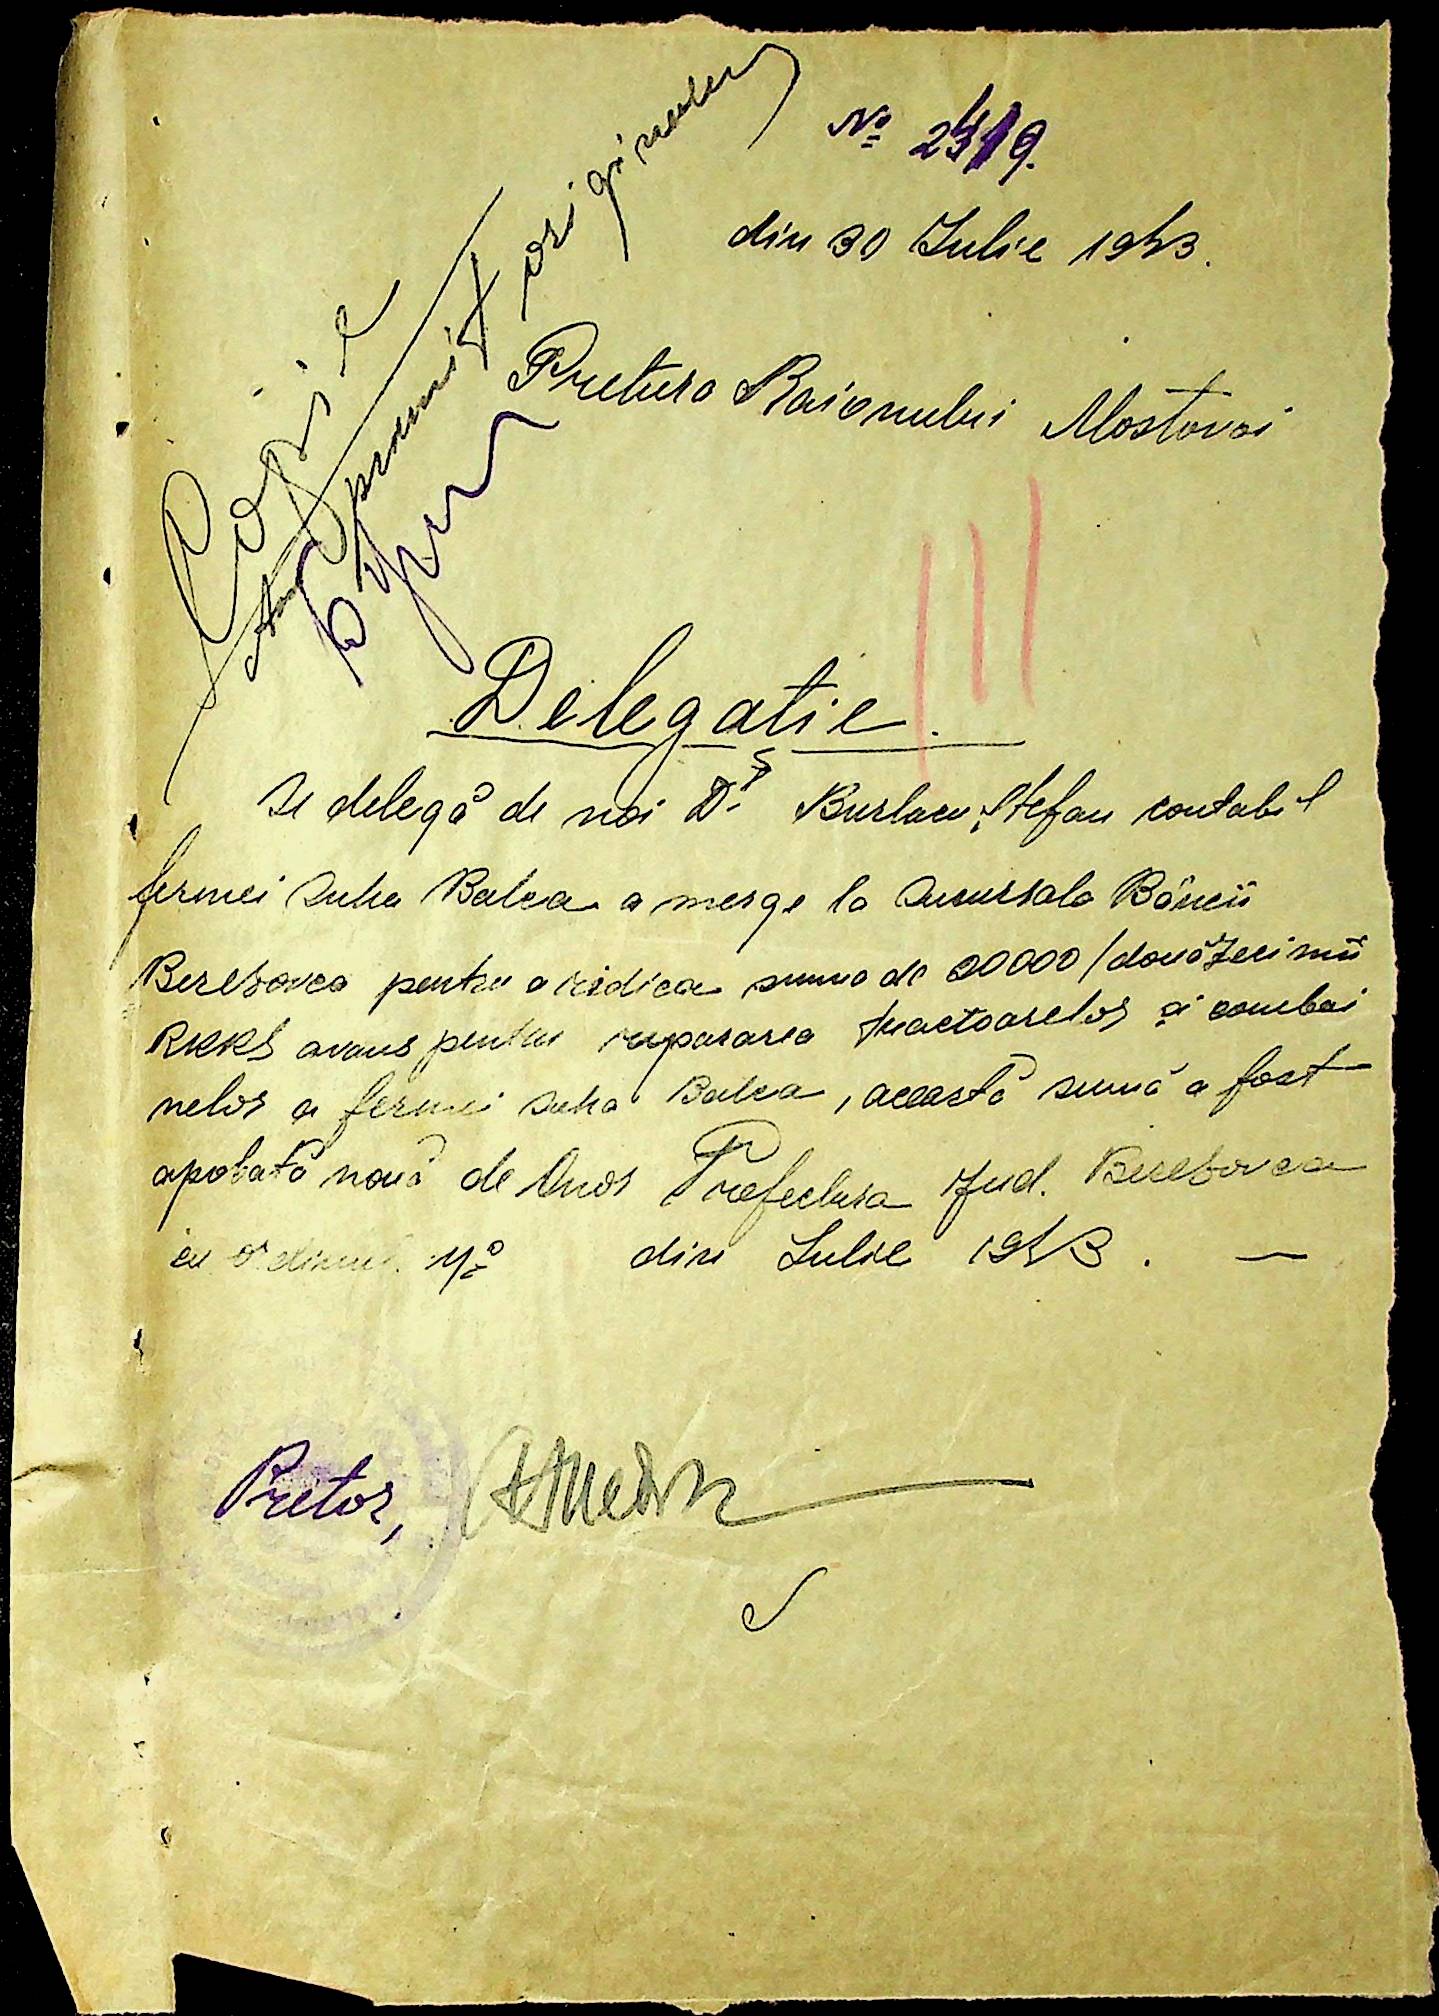 No 2419.
din 30 Iulie 1943.
Copie
Am primit originalul
Pretura Raionului Mostovoi
Delegatie.
Se delegă de noi Dl Burlacu Ștefan contabil
fermei Suha Balca a merge la Sucursala Băncii
Beresovca pentru a ridica suma de 20000 /douăzeci mii
RKKS avans pentru repararea tractoarelor și combai
nelor a fermei Suha Balca, această sumă a fost
apobată nouă de Onor Prefectura Jud. Beresovca
cu ordinul No din Iulie 1943. —
Pretor,